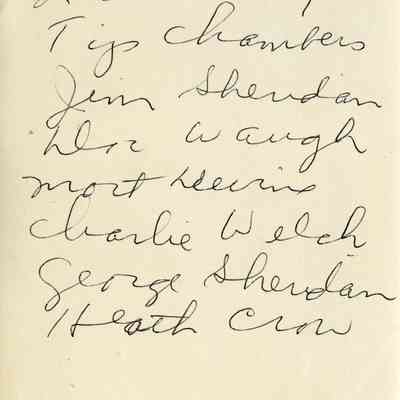 Tips Chambers
Jim Sheridan
Doc Waugh
Mort
Charlie Welch
George Sheridan
Heath Crow